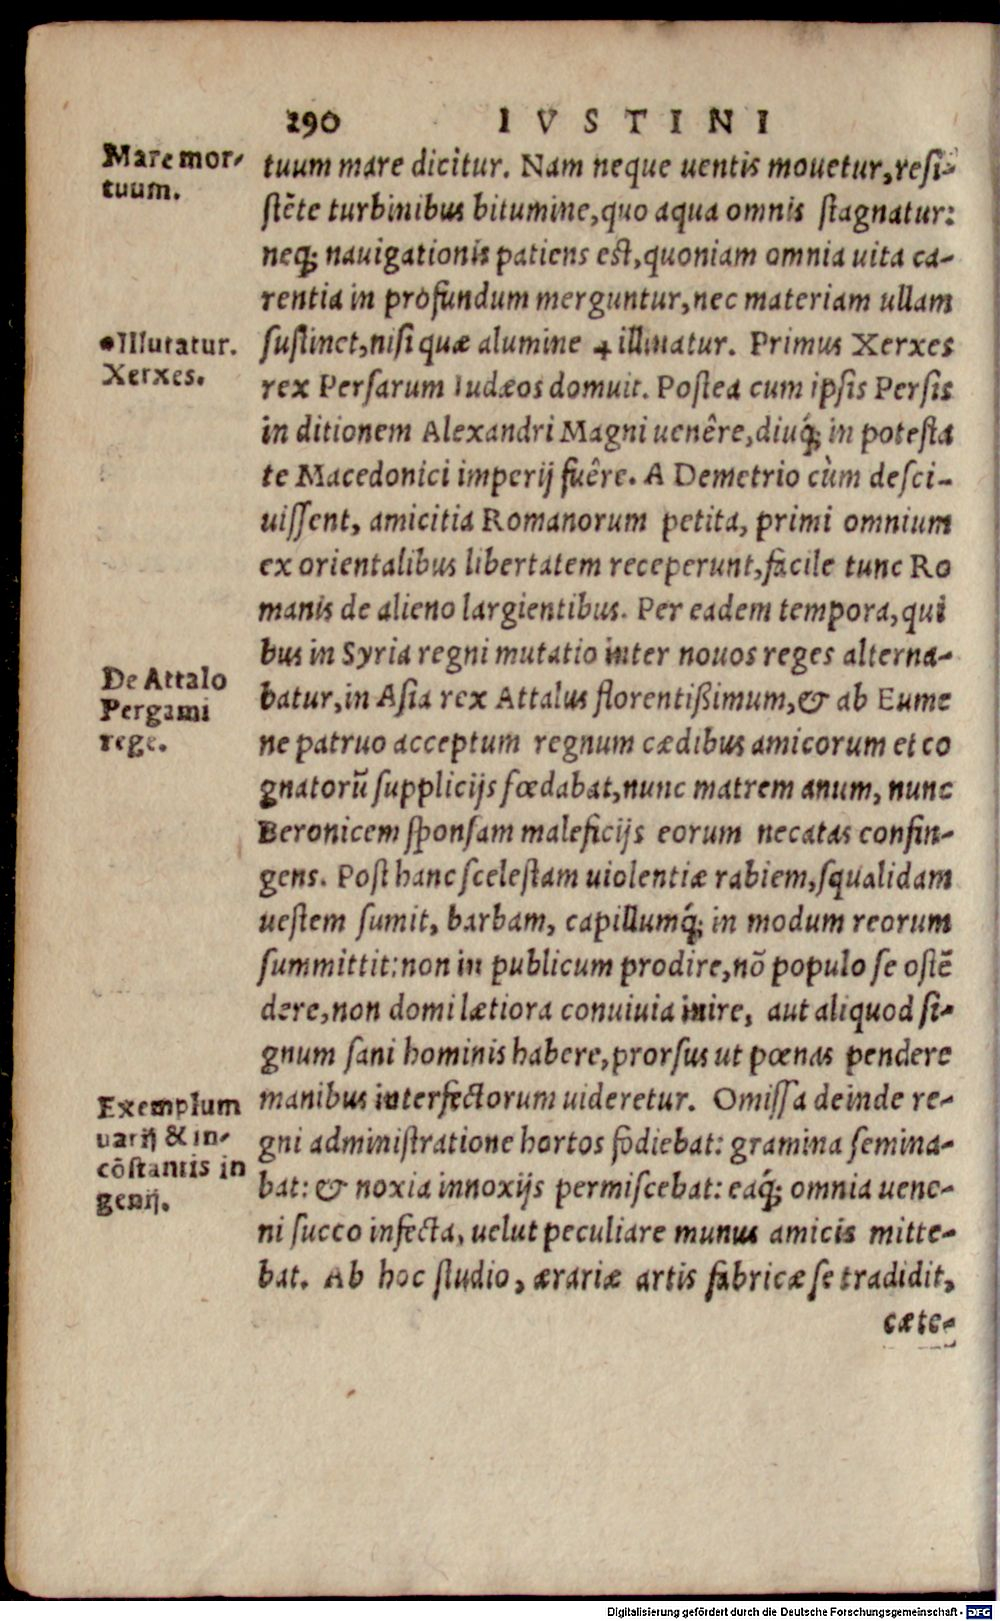 290 IVSTINI
Mare mor-
tuum.
tuum mare dicitur. Nam neque uentis mouetur, resi-
stẽte turbinibus bitumine, quo aqua omnis stagnatur:
neq; nauigationis patiens est, quoniam omnia uita ca-
rentia in profundum merguntur, nec materiam ullam
•Illutatur.
Xerxes.
sustinet, nisi quæ alumine + illinatur. Primus Xerxes
rex Persarum Iudæos domuit. Postea cum ipsis Persis
in ditionem Alexandri Magni uenêre, diuq́; in potesta
te Macedonici imperij fuêre. A Demetrio cùm desci-
uissent, amicitia Romanorum petita, primi omnium
ex orientalibus libertatem receperunt, facile tunc Ro
manis de alieno largientibus. Per eadem tempora, qui
bus in Syria regni mutatio inter nouos reges alterna-
De Attalo
Pergami
rege.
batur, in Asia rex Attalus florentißimum, & ab Eume
ne patruo acceptum regnum cædibus amicorum et co
gnatorũ supplicijs fœdabat, nunc matrem anum, nunc
Beronicem sponsam maleficijs eorum necatas confin-
gens. Post hanc scelestam uiolentiæ rabiem, squalidam
uestem sumit, barbam, capillumq́; in modum reorum
summittit: non in publicum prodire, nõ populo se ostẽ
dere, non domi lætiora conuiuia inire, aut aliquod si-
gnum sani hominis habere, prorsus ut pœnas pendere
Exemplum
uarij & in-
cõstantis in
genij.
manibus interfectorum uideretur. Omissa deinde re-
gni administratione hortos fodiebat: gramina semina-
bat: & noxia innoxijs permiscebat: eaq́; omnia uene-
ni succo infecta, uelut peculiare munus amicis mitte-
bat. Ab hoc studio, ærariæ artis fabricæ se tradidit,
cæte-
Digitalisierung gefördert durch die Deutsche Forschungsgemeinschaft - DFG